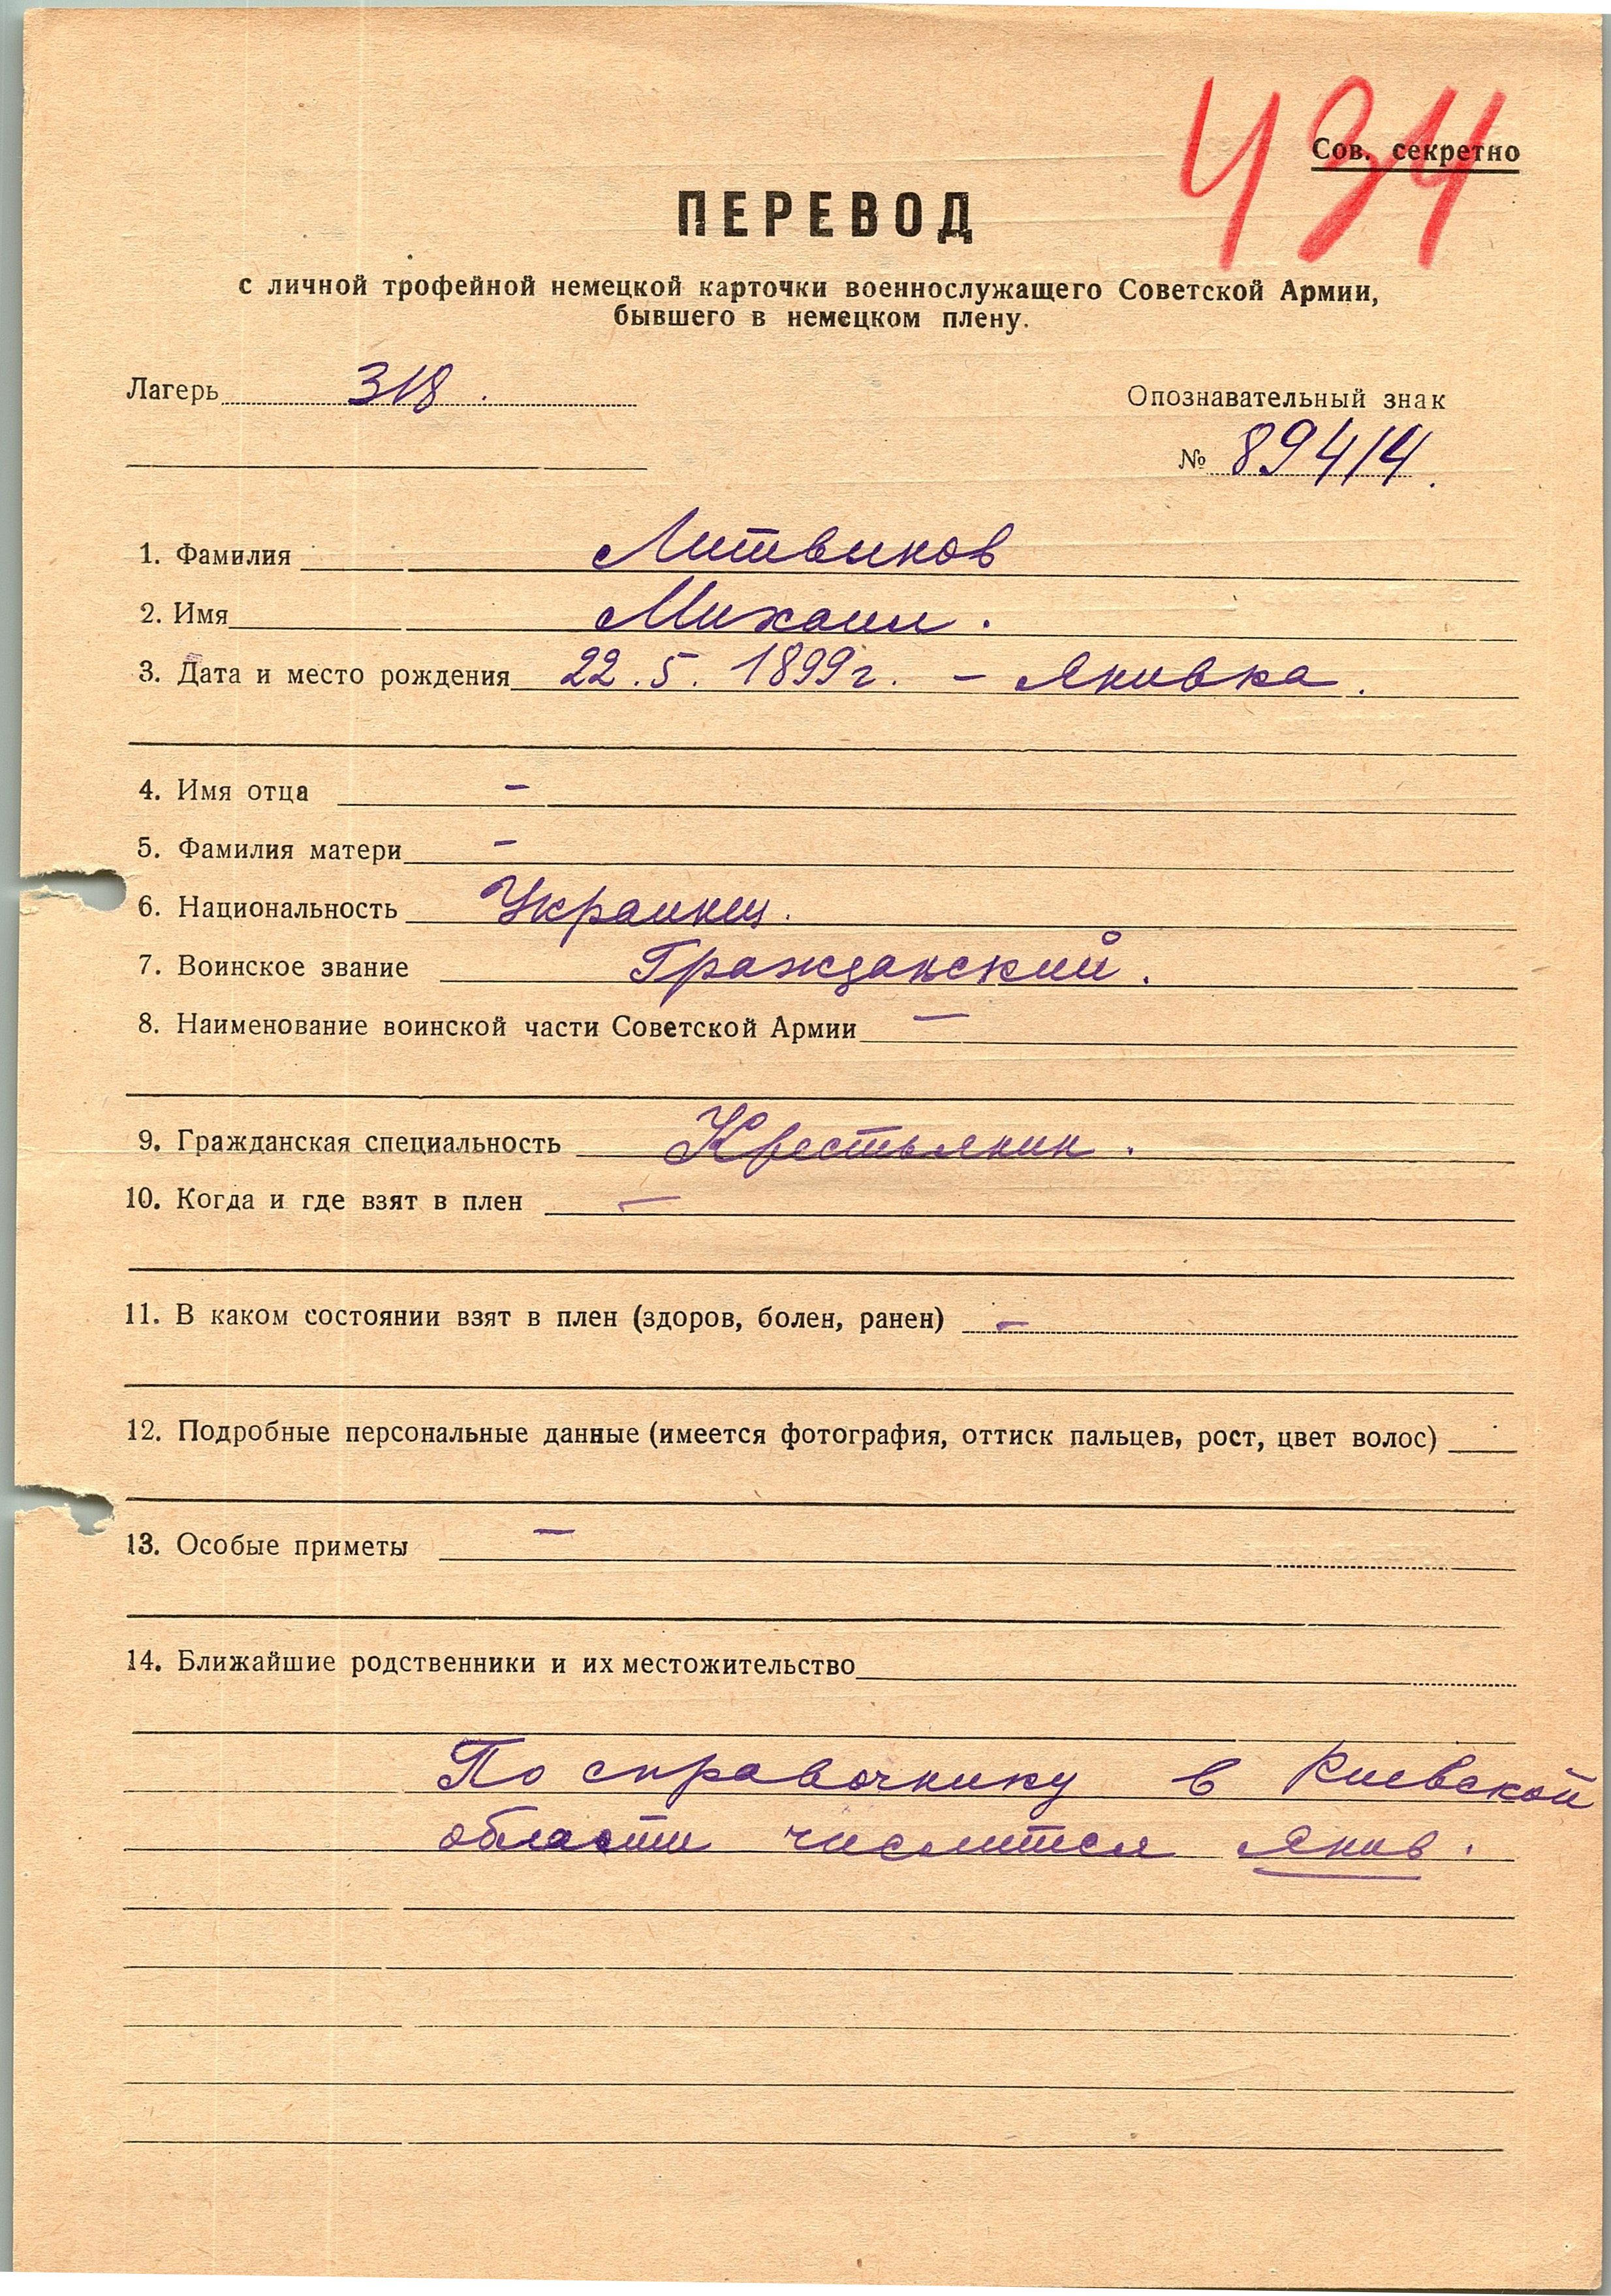 434
Сов. секретно
ПЕРЕВОД
с личной трофейной немецкой карточки военнослужащего Советской Армии,
бывшего в немецком плену.
Лагерь 318.
Опознавательный знак
№ 89414.
1. Фамилия Литвинов
2. Имя Михаил.
3. Дата и место рождения 22.5.1899г. – Янивка.
4. Имя отца –
5. Фамилия матери –
6. Национальность Украинец.
7. Воинское звание Гражданский.
8. Наименование воинской части Советской Армии –
9. Гражданская специальность Крестьянин.
10. Когда и где взят в плен –
11. В каком состоянии взят в плен (здоров, болен, ранен) –
12. Подробные персональные данные (имеется фотография, оттиск пальцев, рост, цвет волос)
13. Особые приметы –
14. Ближайшие родственники и их местожительство
По справочнику в Киевской
области числится Янив.